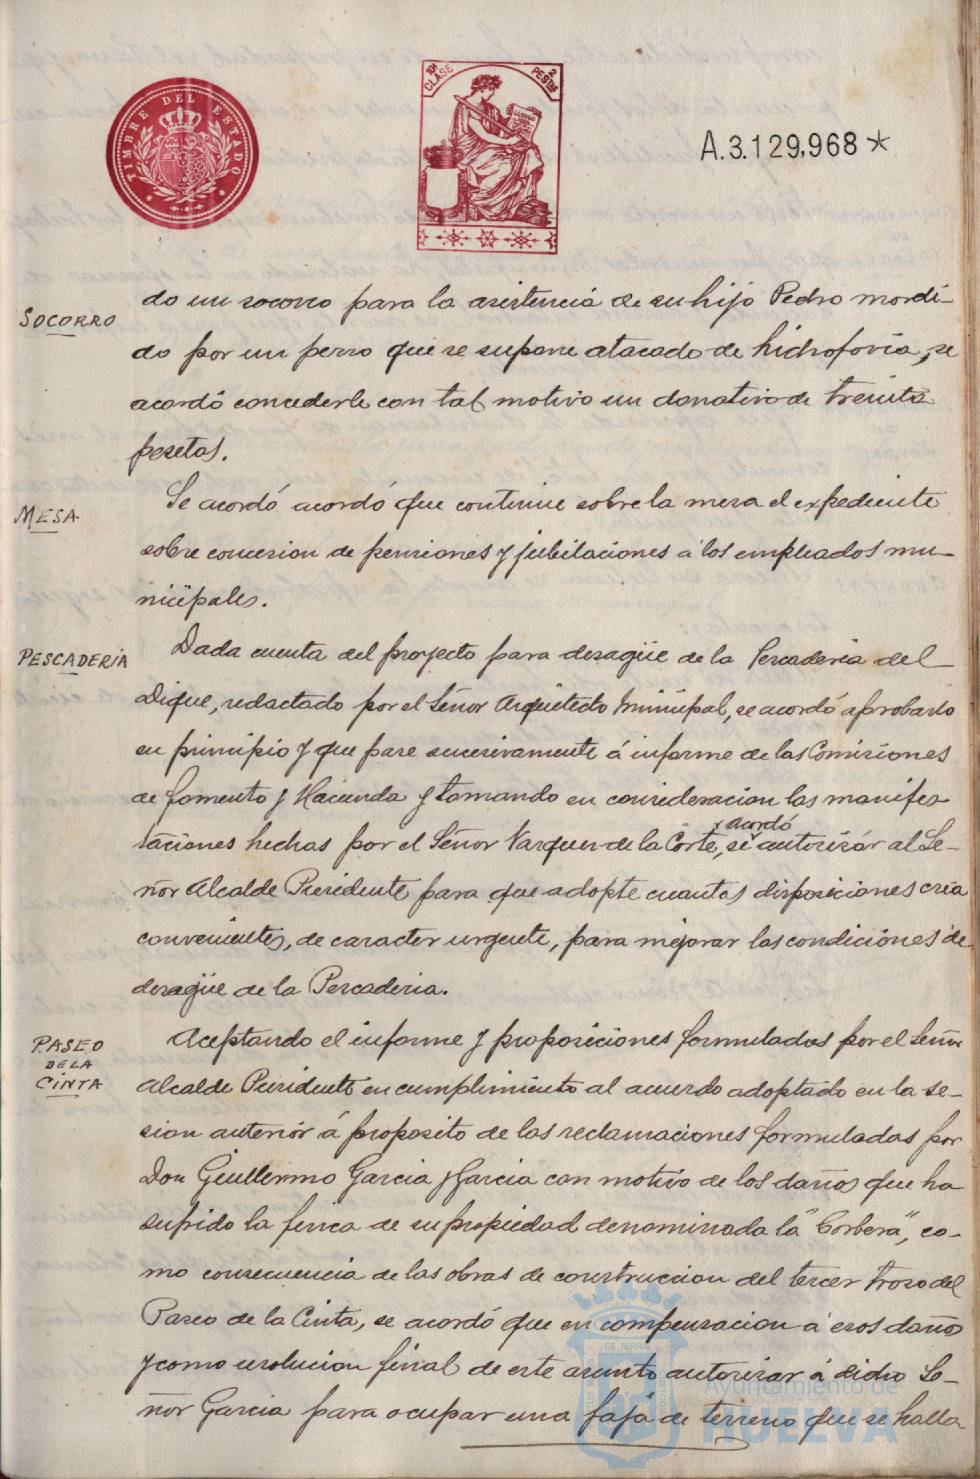 TIMBRE DEL ESTADO
10ª CLASE
2 PESTAS
A.3.129,968*
SOCORRO
do un socorro para la asistencia de su hijo Pedro mordi-
do por un perro que se supone atacado de hidrofovia, se
acordó concederle con tal motivo un donativo de treinta
pesetas.
MESA
Se acordó acordó que continue sobre la mesa el expediente
sobre concesion de pensiones y jubilaciones á los empleados mu-
nicipales.
PESCADERÍA
Dada cuenta del proyecto para desagüe de la Pescaderia del
Dique, redactado por el Señor Arquitecto Municipal, se acordó aprobarlo
en principio y que pase sucesivamente á informe de las Comisiones
de Fomento y Hacienda y tomando en consideracion las manifes
taciones hechas por el Señor Vazquez de la Corte, se acordó autorizar al Se-
ñor Alcalde Presidente para que adopte cuantas disposiciones crea
convenientes, de caracter urgente, para mejorar las condiciones de
desagüe de la Pescaderia.
PASEO
DE LA
CINTA
Aceptando el informe y proposiciones formuladas por el Señor
Alcalde Presidente en cumplimiento al acuerdo adoptado en la se-
sion anterior á proposito de las reclamaciones formuladas por
Don Guillermo Garcia y Garcia con motivo de los daños que ha
sufrido la finca de su propiedad denominada la "Corbera", co-
mo consecuencia de las obras de construccion del tercer trozo del
Paseo de la Cinta, se acordó que en compensacion á esos daños
y como resolucion final de este asunto autorizar á dicho Se-
ñor Garcia para ocupar una faja de terreno que se halla
Ayuntamiento de
HUELVA